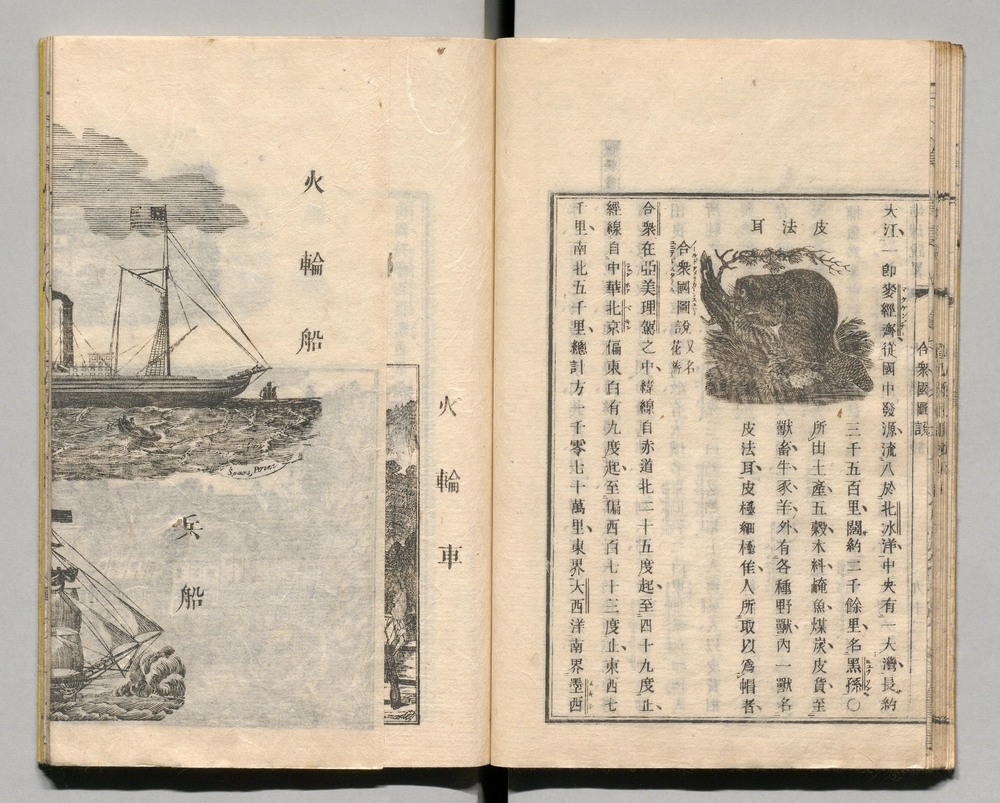 合衆國圖説
大江、一卽麥經濟從國中發源流入於北冰洋、中央有一大灣、長約
三千五百里、闊約二千餘里、名黑孫〇
所出土產、五穀木料、醃魚煤炭、皮貨至
獸畜牛豕羊外、有各種野獸、內一獸名
皮法耳、皮極細極佳、人所取以爲帽者、
皮法耳
合衆國圖說又名花旗
合衆在亞美理駕之中、緯線自赤道北二十五度起、至四十九度止、
經線自中華北京偏東百有九度起、至偏西百七十三度止、東西七
千里、南北五千里、總計方一千零七十萬里、東界大西洋、南界墨西
火輪車
火輪船
兵船